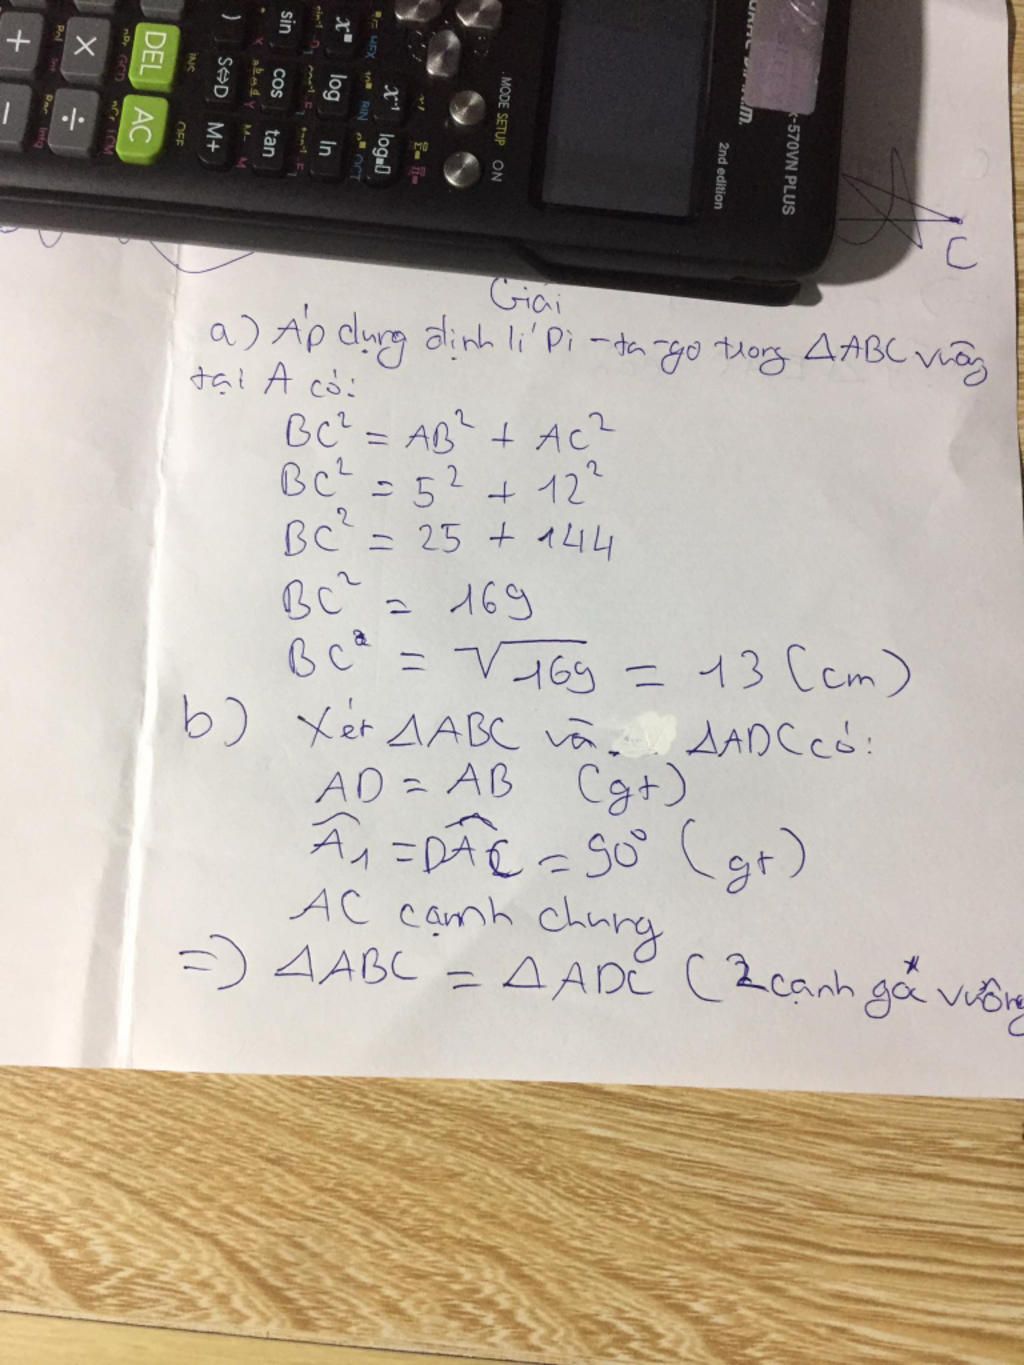 DEL
AC
OFF
S⇔D
M+
sin
cos
tan
log
ln
MODE SETUP ON
2nd edition
-570VN PLUS
C
Giải
a) Áp dụng định lí Pi-ta-go trong ΔABC vuông
tại A có:
BC² = AB² + AC²
BC² = 5² + 12²
BC² = 25 + 144
BC² = 169
BC² = √169 = 13 (cm)
b) Xét ΔABC và ΔADC có:
AD = AB (gt)
Â₁ = DÂC = 90° (gt)
AC cạnh chung
=> ΔABC = ΔADC (2 cạnh gó vuông